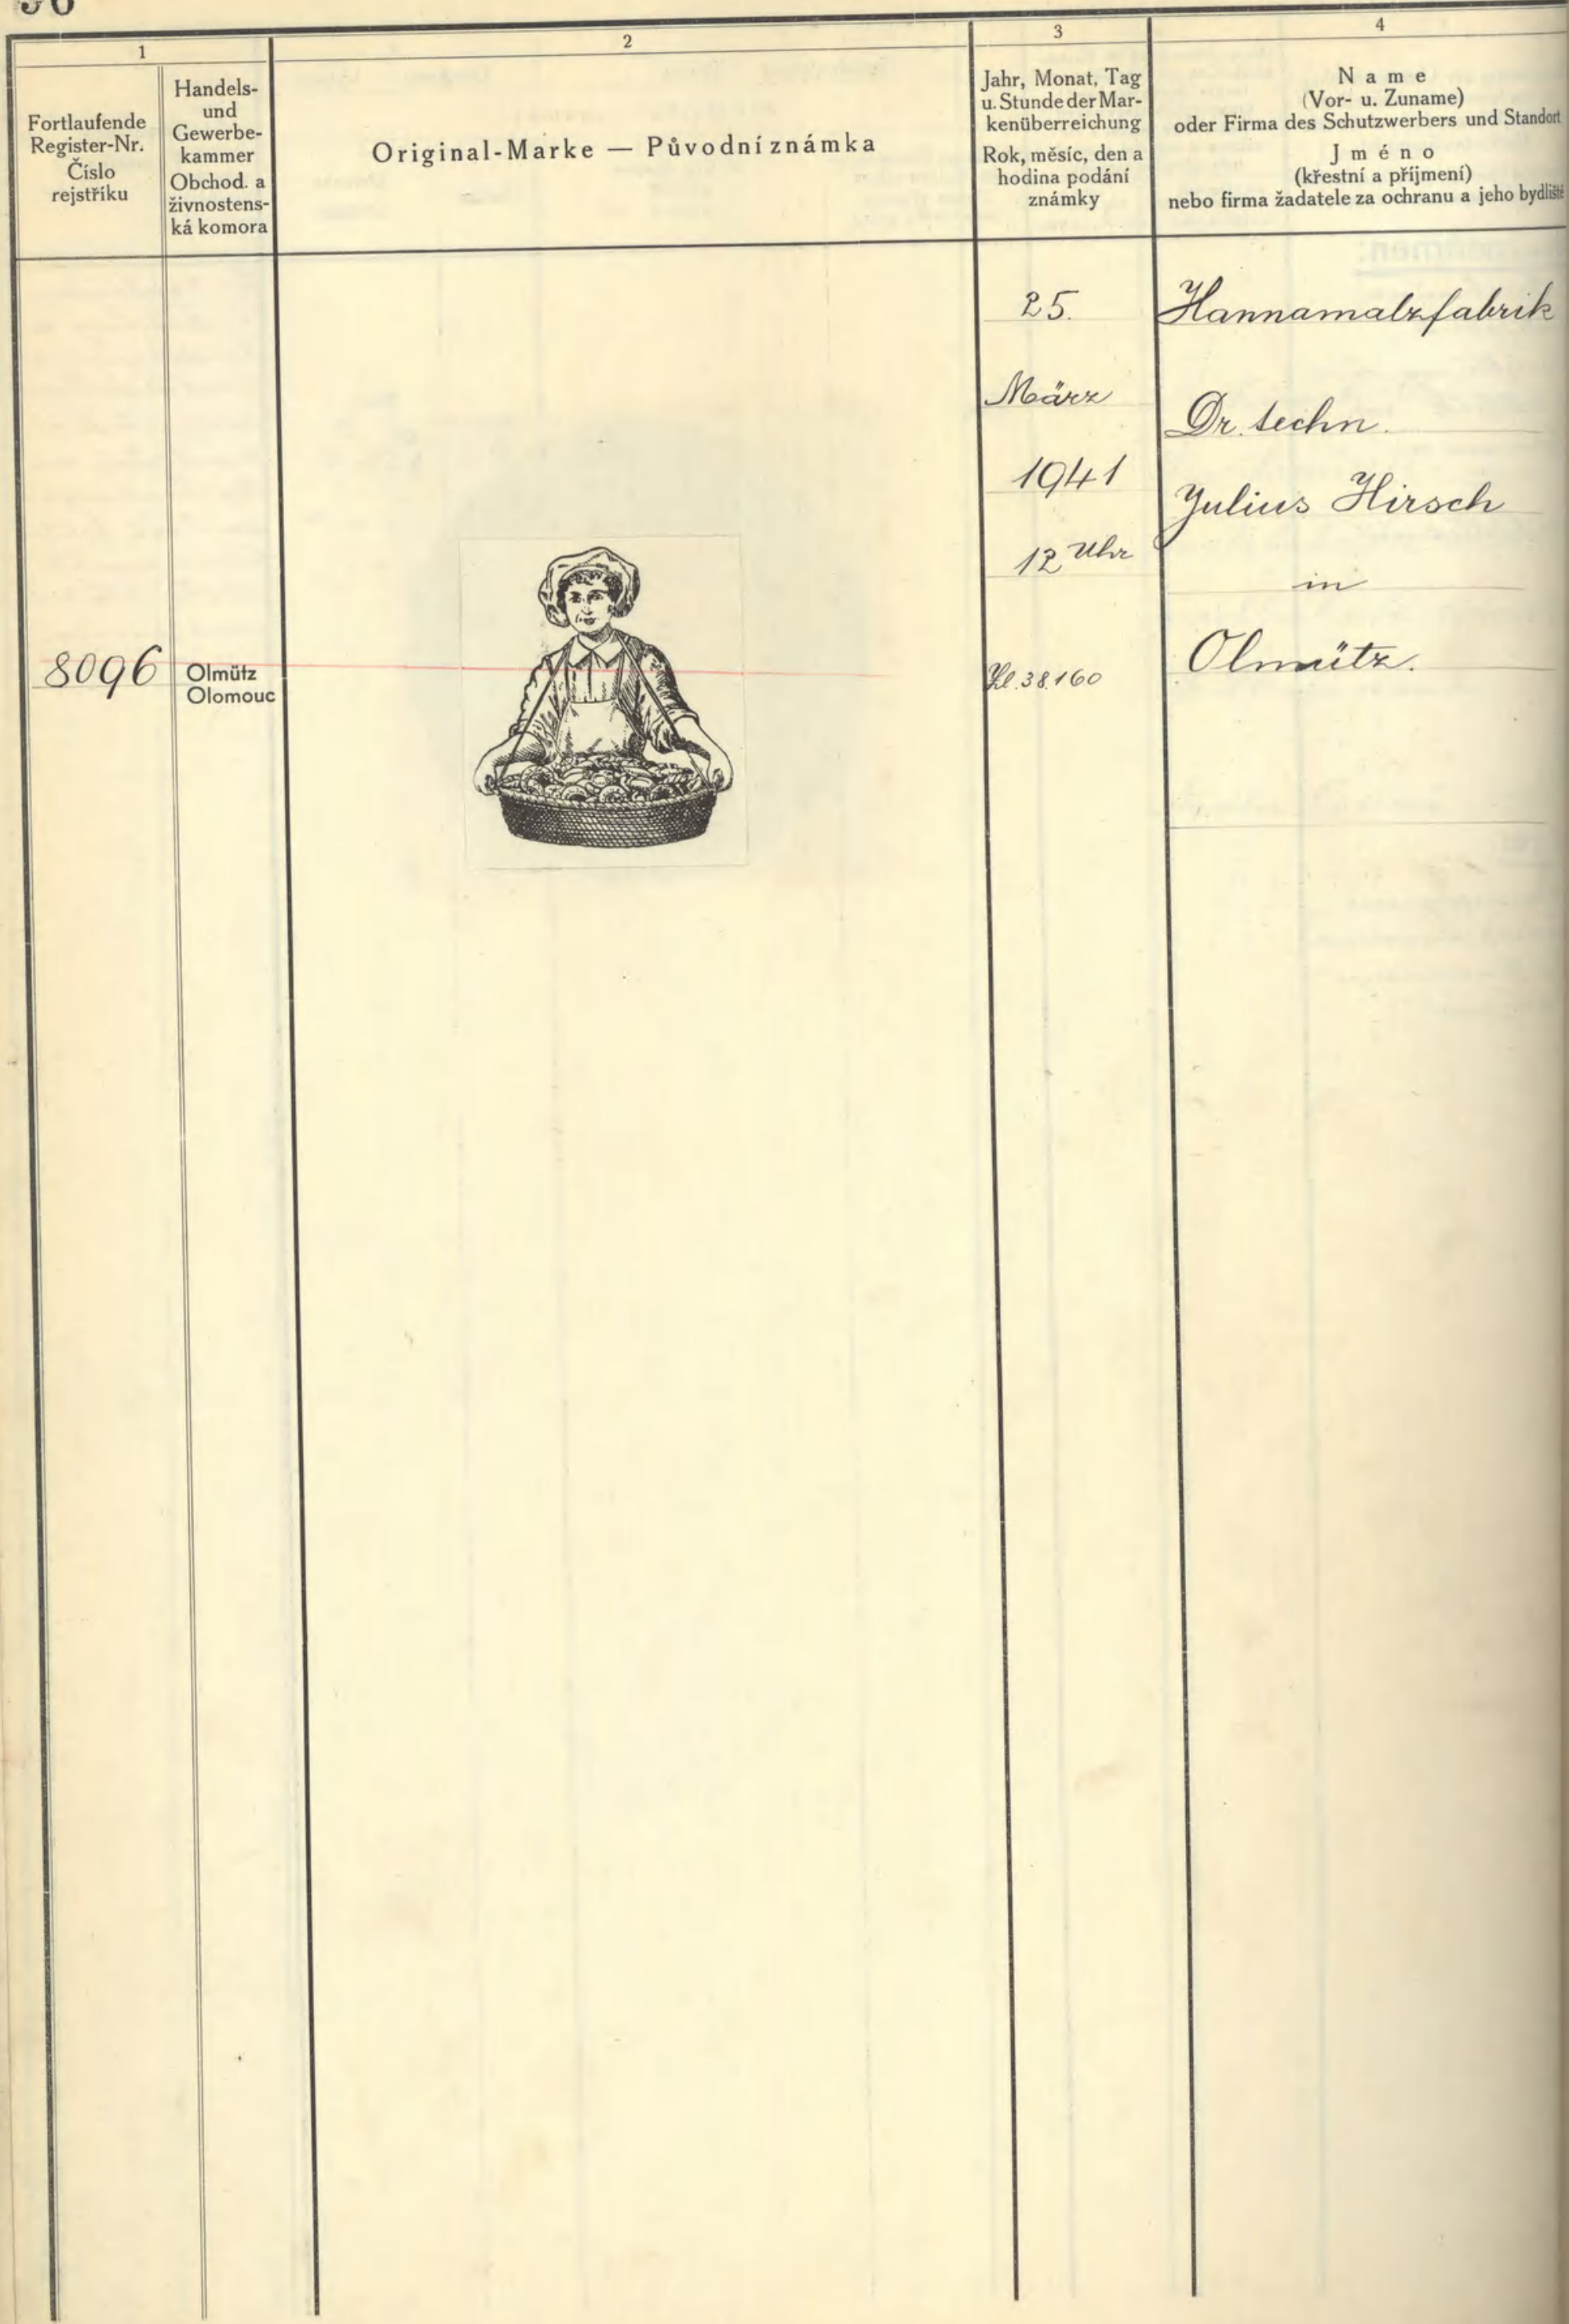 1
Fortlaufende
Register-Nr.
Číslo
rejstříku
Handels-
und
Gewerbe-
kammer
Obchod. a
živnostens-
ká komora
2
Original-Marke — Původní známka
3
Jahr, Monat, Tag
u. Stunde der Mar-
kenüberreichung
Rok, měsíc, den a
hodina podání
známky
4
Name
(Vor- u. Zuname)
oder Firma des Schutzwerbers und Standort
Jméno
(křestní a příjmení)
nebo firma žadatele za ochranu a jeho bydliště
8096
Olmütz
Olomouc
25.
März
1941
12 Uhr
38.160
Hannamalzfabrik
Dr. techn.
Julius Hirsch
in
Olmütz.